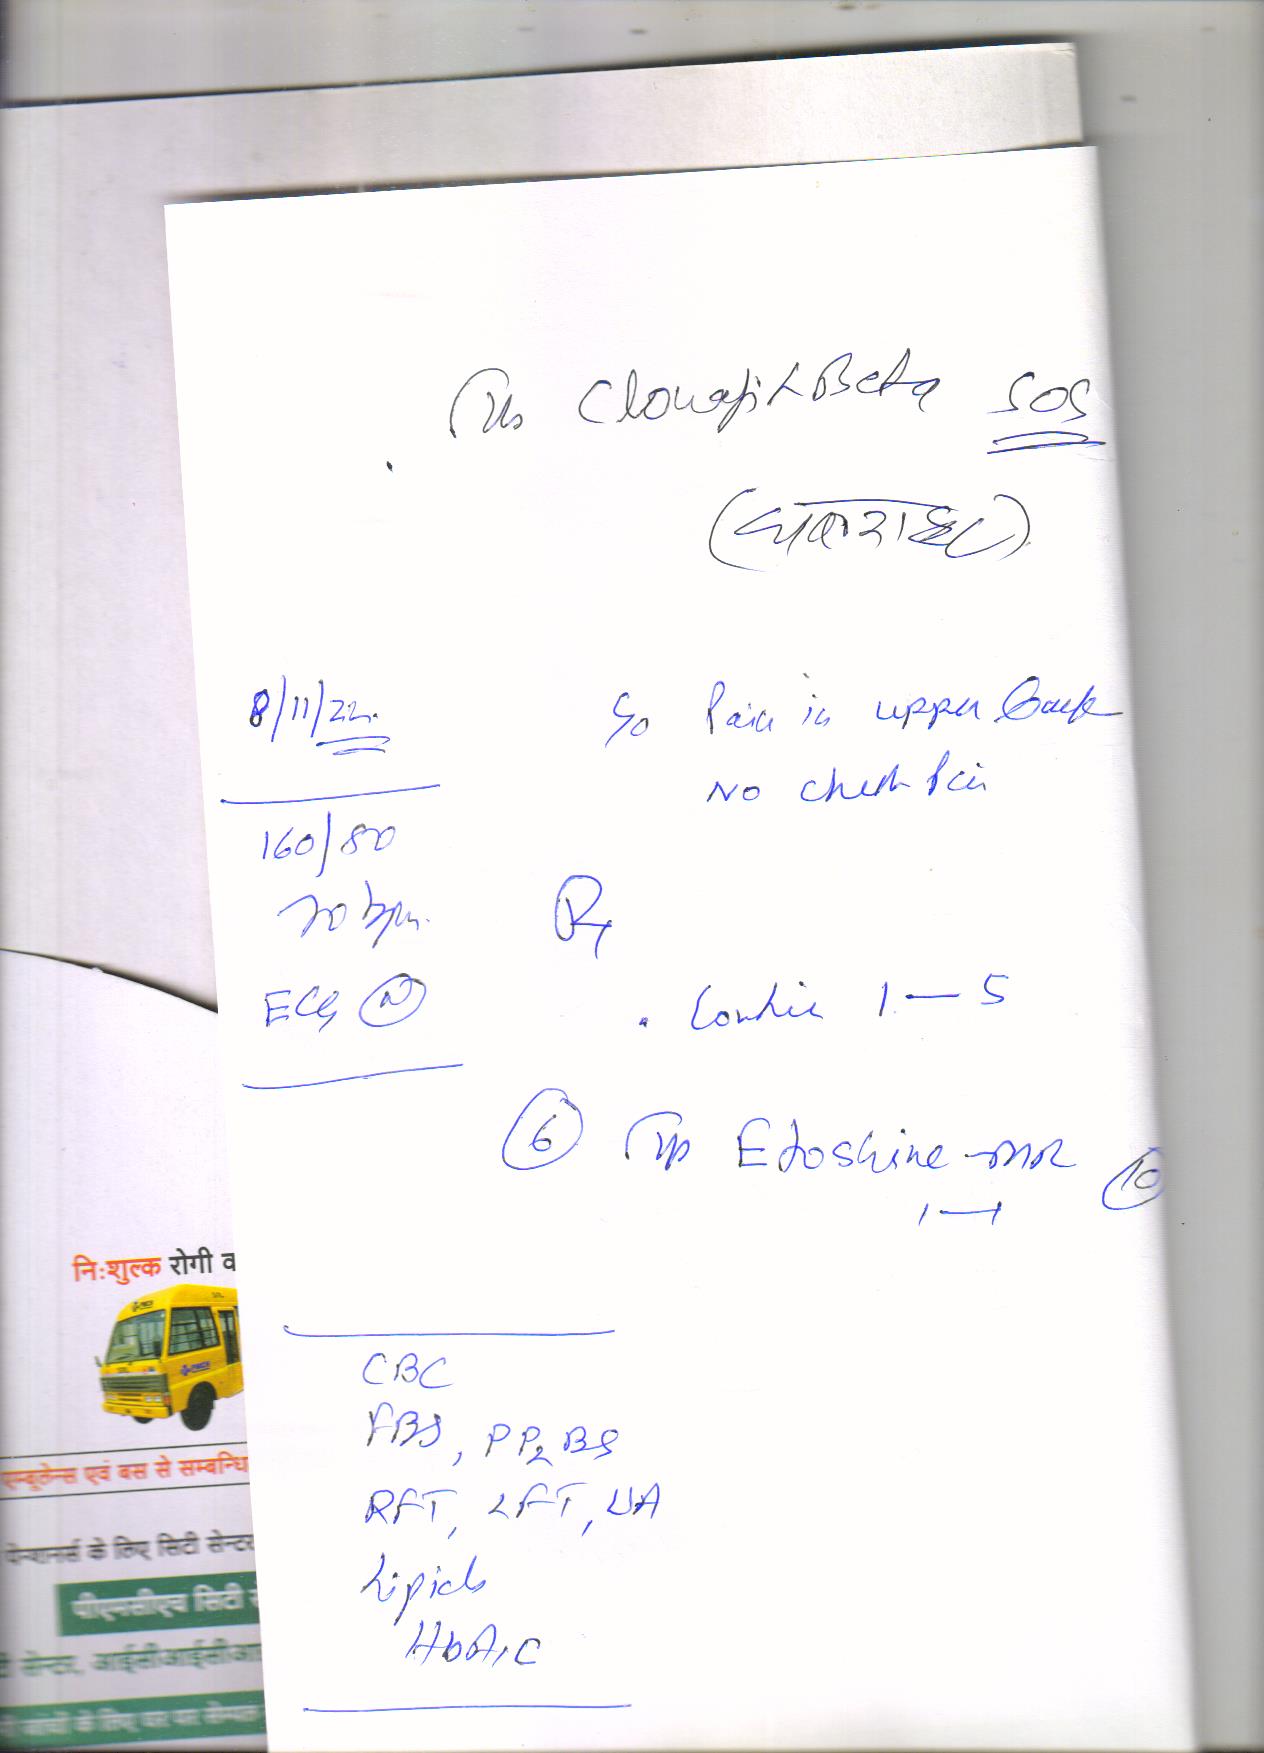 Tab Clonafit Beta SOS
(घबराहट)
8/11/22.
S/o Pain in upper back
No chest Pain
160/80
70 bpm.
ECG (N)
Rx
. Continue 1 — 5
(6) Tab Etoshine-MR (10)
1—1
CBC
FBS, PP2BS
RFT, LFT, UA
Lipids
HbA1C
निःशुल्क रोगी व
एम्बूलेन्स एवं बस से सम्बन्धि
पेन्शनर्स के लिए सिटी सेन्टर
पीएमसीएच सिटी से
सेन्टर, आईसीआईसीआ
के लिए घर पर सेम्पल